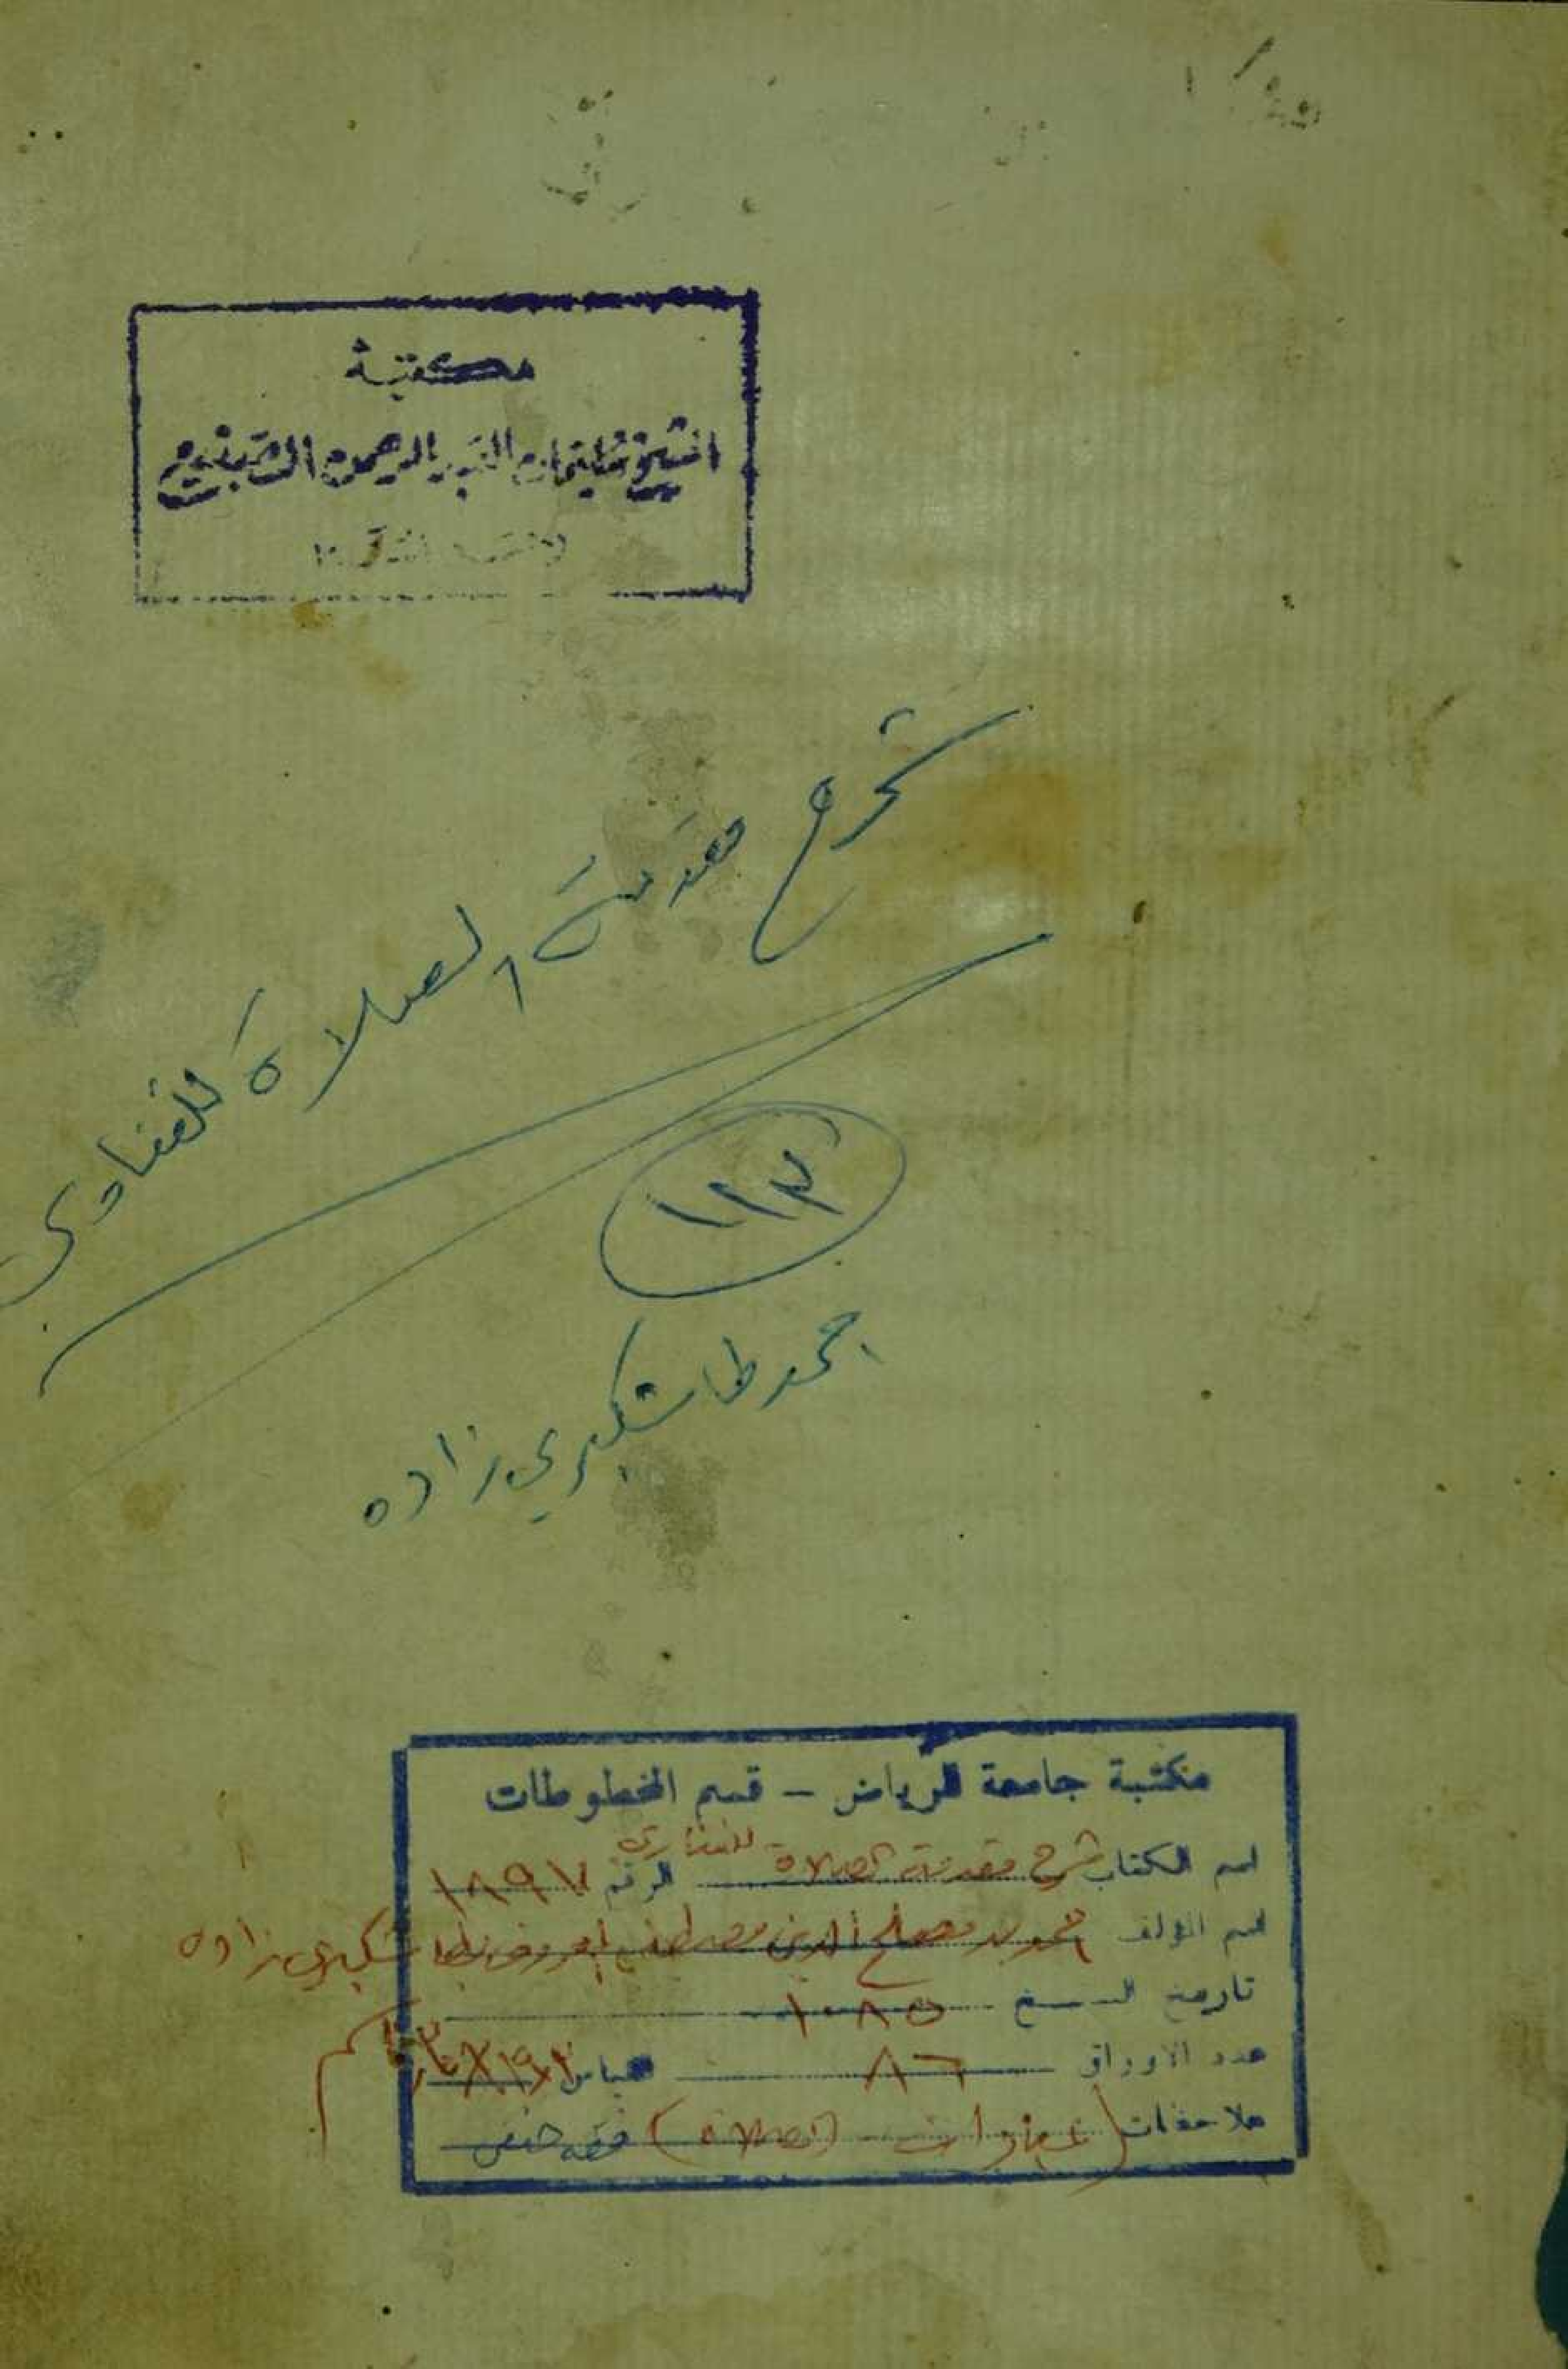 مكتبة
شرح مقدمة الصلاة للفناري
١١٣
احمد طاشكبري زاده
مكتبة جامعة الرياض - قسم المخطوطات
اسم الكتاب شرح مقدمة الصلاة للفناري الرقم ١٨٩٧
اسم المؤلف أحمد بن مصلح الدين مصطفى المعروف بطاشكبري زاده
تاريخ النسخ ١٠٨٥
عدد الأوراق ٨٦ القياس سم
ملاحظات (عبادات - الصلاة) فقه حنفي